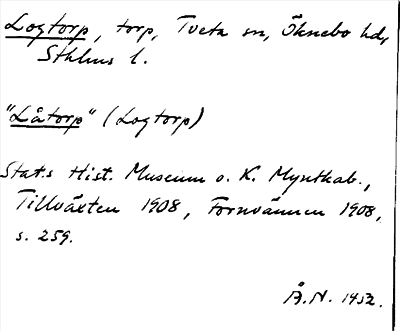 Logtorp, torp, Tveta sn, Öknebo hd,
Sthlms l.
"Låtorp" (Logtorp)
Stat:s Hist. Museum o. K. Myntkab.,
Tillväxten 1908, Fornvännen 1908,
s. 259.
Å.N. 1952.